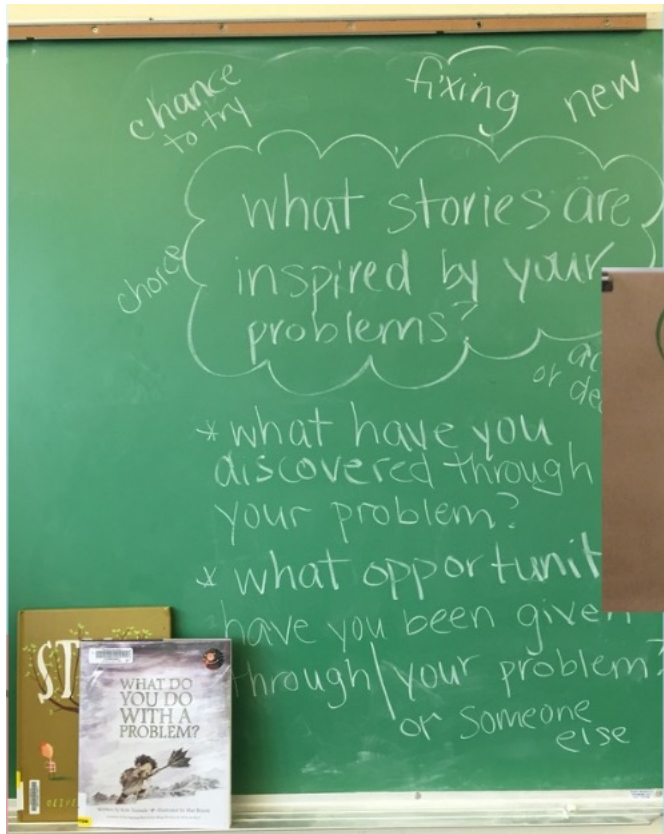 chance
to try
fixing
new
choice
what stories are
inspired by your
problems?
or
* what have you
discovered through
your problem?
* what opportunit
have you been given
through your problem?
or someone
else
WHAT DO
YOU DO
WITH A
PROBLEM?